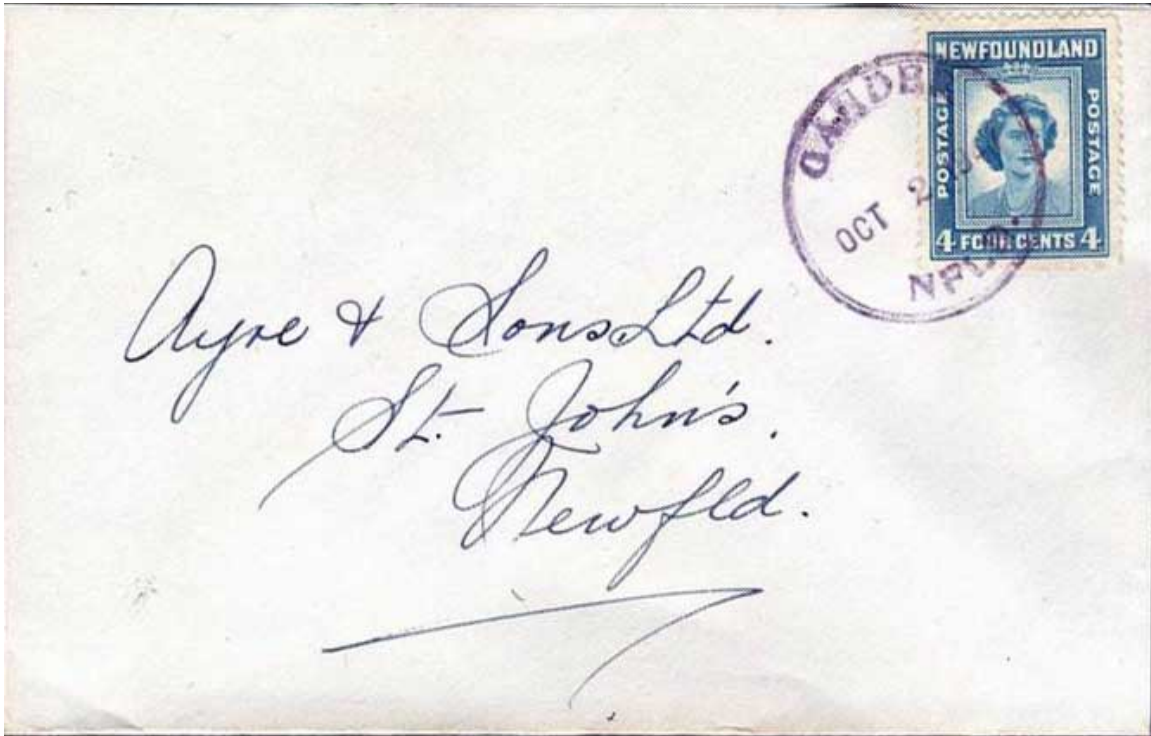 NEWFOUNDLAND
POSTAGE
POSTAGE
4 FOUR CENTS 4
OCT
NFLD.
Ayre & Sons Ltd.
St. John's,
Newfld.